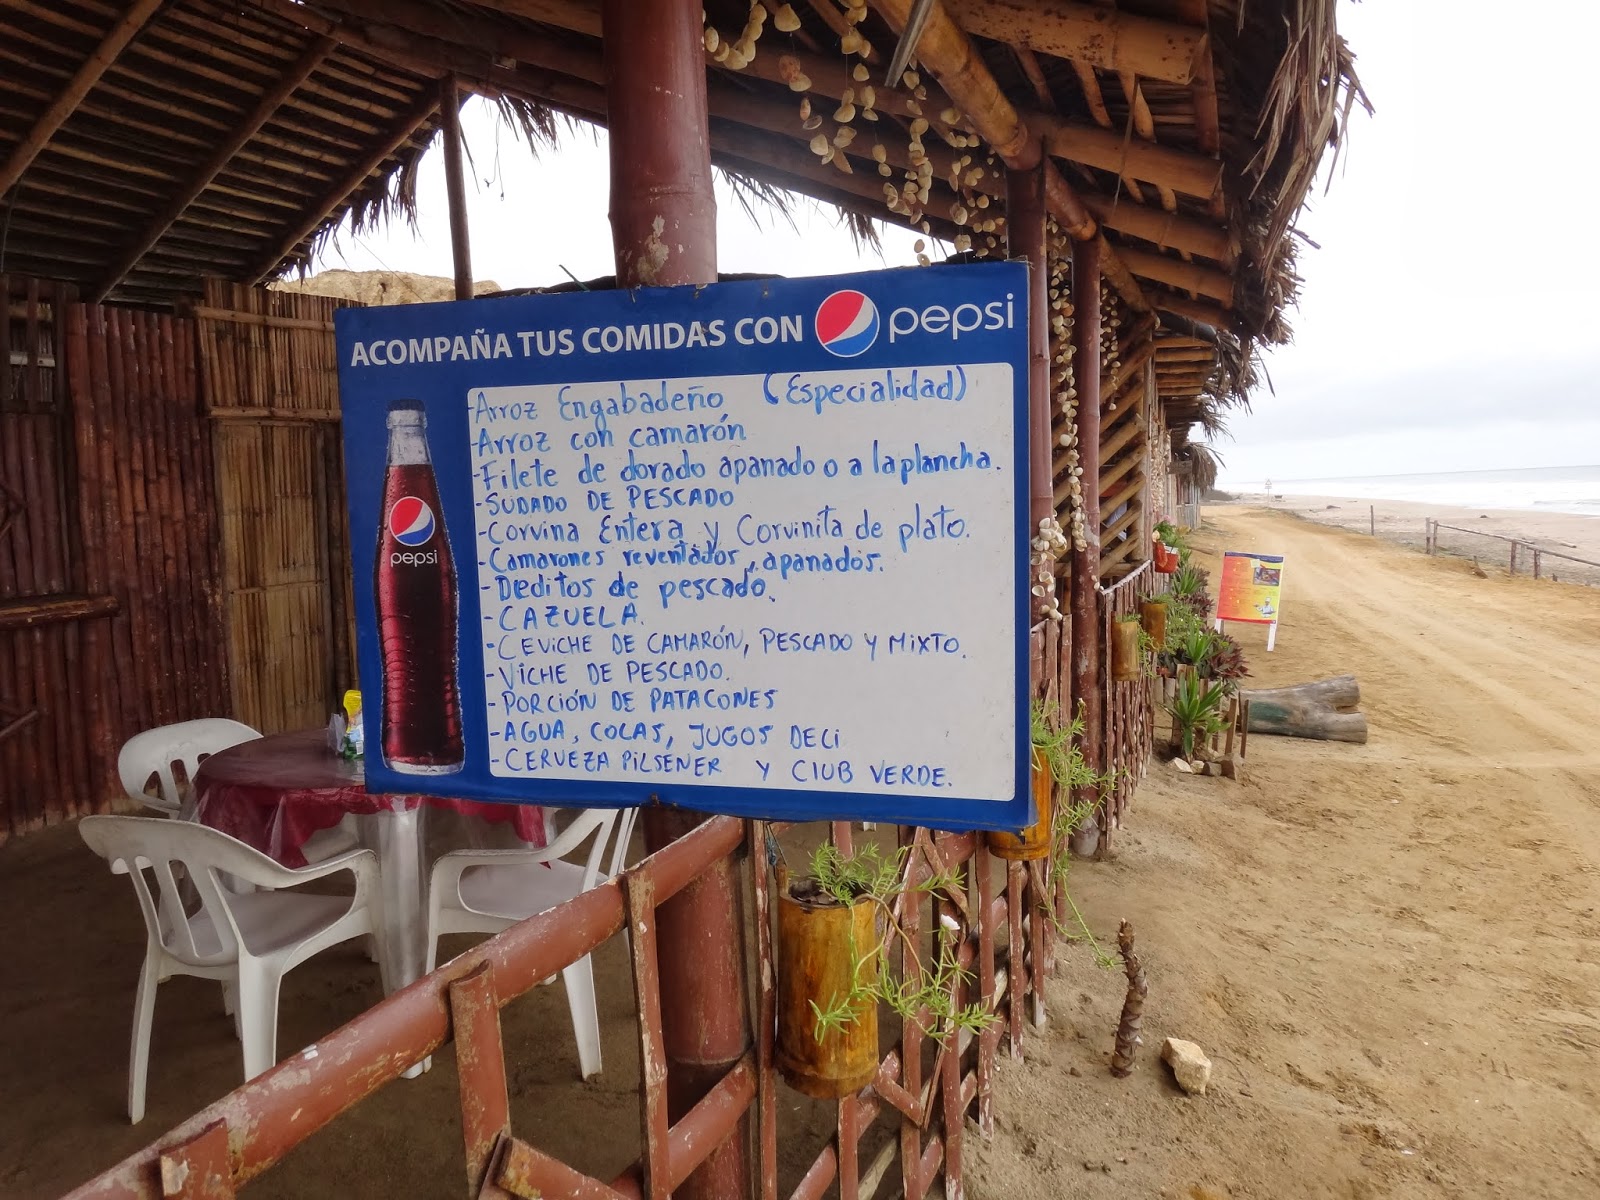 ACOMPAÑA TUS COMIDAS CON pepsi
pepsi
-Arroz Engabadeño (Especialidad)
-Arroz con camarón
-Filete de dorado apanado o a la plancha.
-SUDADO DE PESCADO
-Corvina Entera y Corvinita de plato.
-Camarones reventados, apanados.
-Deditos de pescado.
-CAZUELA.
-CEVICHE DE CAMARÓN, PESCADO Y MIXTO.
-VICHE DE PESCADO.
-PORCIÓN DE PATACONES
-AGUA, COLAS, JUGOS DELi
-CERVEZA PILSENER Y CLUB VERDE.